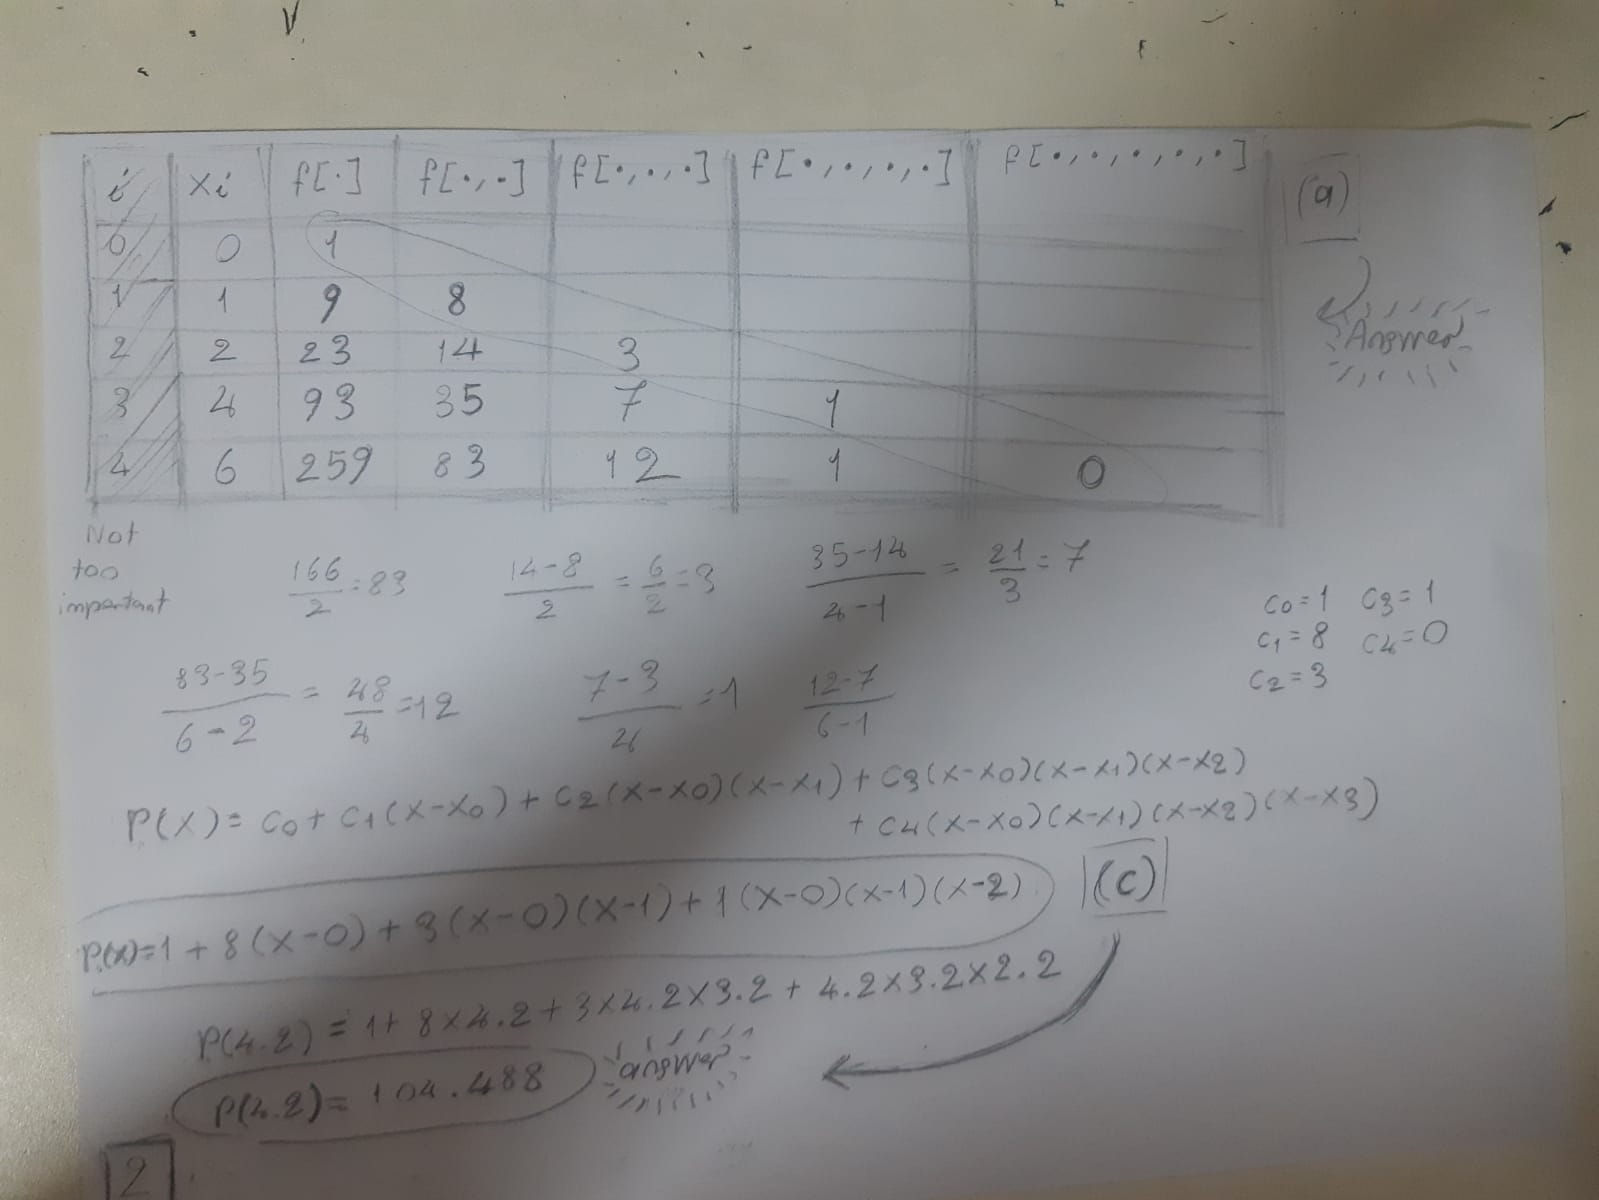 i xi f[·] f[·,·] f[·,·,·] f[·,·,·,·] f[·,·,·,·,·] (a)
0 0 1
1 1 9 8
Answer
2 2 23 14 3
3 4 93 35 7 1
4 6 259 83 12 1 0
Not
too
important
166/2 = 83 14-8/2 = 6/2 = 3 35-14/4-1 = 21/3 = 7
c0=1 c3=1
c1=8 c4=0
c2=3
83-35/6-2 = 48/4 = 12 7-3/4 = 1 12-7/6-1
P(x) = c0 + c1(x-x0) + c2(x-x0)(x-x1) + c3(x-x0)(x-x1)(x-x2)
+ c4(x-x0)(x-x1)(x-x2)(x-x3)
P(x)=1+8(x-0)+3(x-0)(x-1)+1(x-0)(x-1)(x-2) (c)
P(4.2) = 1+8×4.2+3×4.2×3.2+4.2×3.2×2.2
P(4.2)= 104.488 answer
2